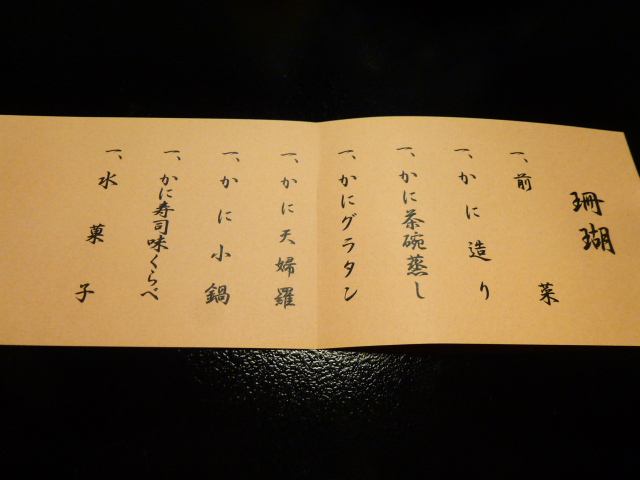 珊瑚
一、前菜
一、かに造り
一、かに茶碗蒸し
一、かにグラタン
一、かに天婦羅
一、かに小鍋
一、かに寿司味くらべ
一、水菓子